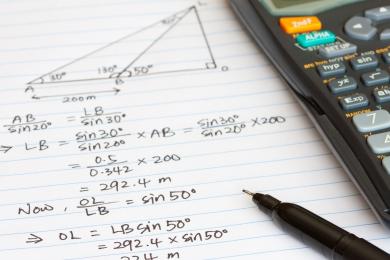 L
30° 130° 50°
A B O
200m
AB/sin20° = LB/sin30°
⇒ LB = sin30°/sin20° × AB = sin30°/sin20° × 200
= 0.5/0.342 × 200
= 292.4 m
Now, OL/LB = sin50°
⇒ OL = LB sin50°
= 292.4 × sin50°
ALPHA
hyp
sin
Exp
7
4